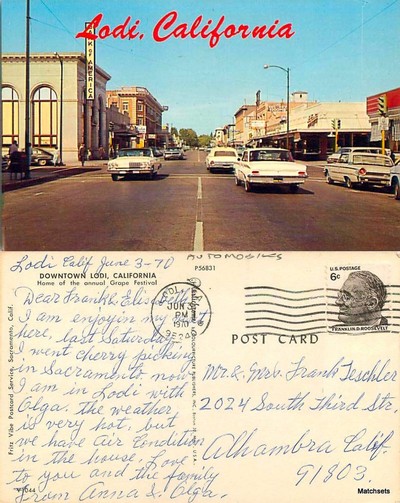 Lodi, California
BANK OF AMERICA
Lodi Calif June 3-70
AUTOMOBILES
DOWNTOWN LODI, CALIFORNIA
Home of the annual Grape Festival
P56831
Dear Frank & Elisabeth
I am enjoyin my visit
here, last Saturday
I went cherry pecking
in Sacramento now
I am in Lodi with
Olga. the weather
is very hot, but
we have air Condition
in the house. Love
to you and the family
From Anna & Olga.
Print Vibe Postcard Service, Sacramento, Calif.
LODI, CA
JUN 3
PM
1970
U.S. POSTAGE
6c
FRANKLIN D. ROOSEVELT
POST CARD
Mr. & Mrs. Frank Teschler
2024 South Third Str.
Alhambra Calif.
91803
Matchsets